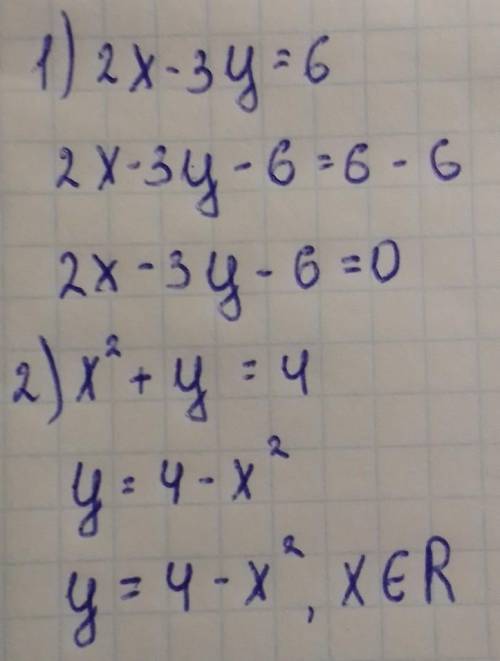 1) 2x - 3y = 6
2x - 3y - 6 = 6 - 6
2x - 3y - 6 = 0
2) x² + y = 4
y = 4 - x²
y = 4 - x², x ∈ R